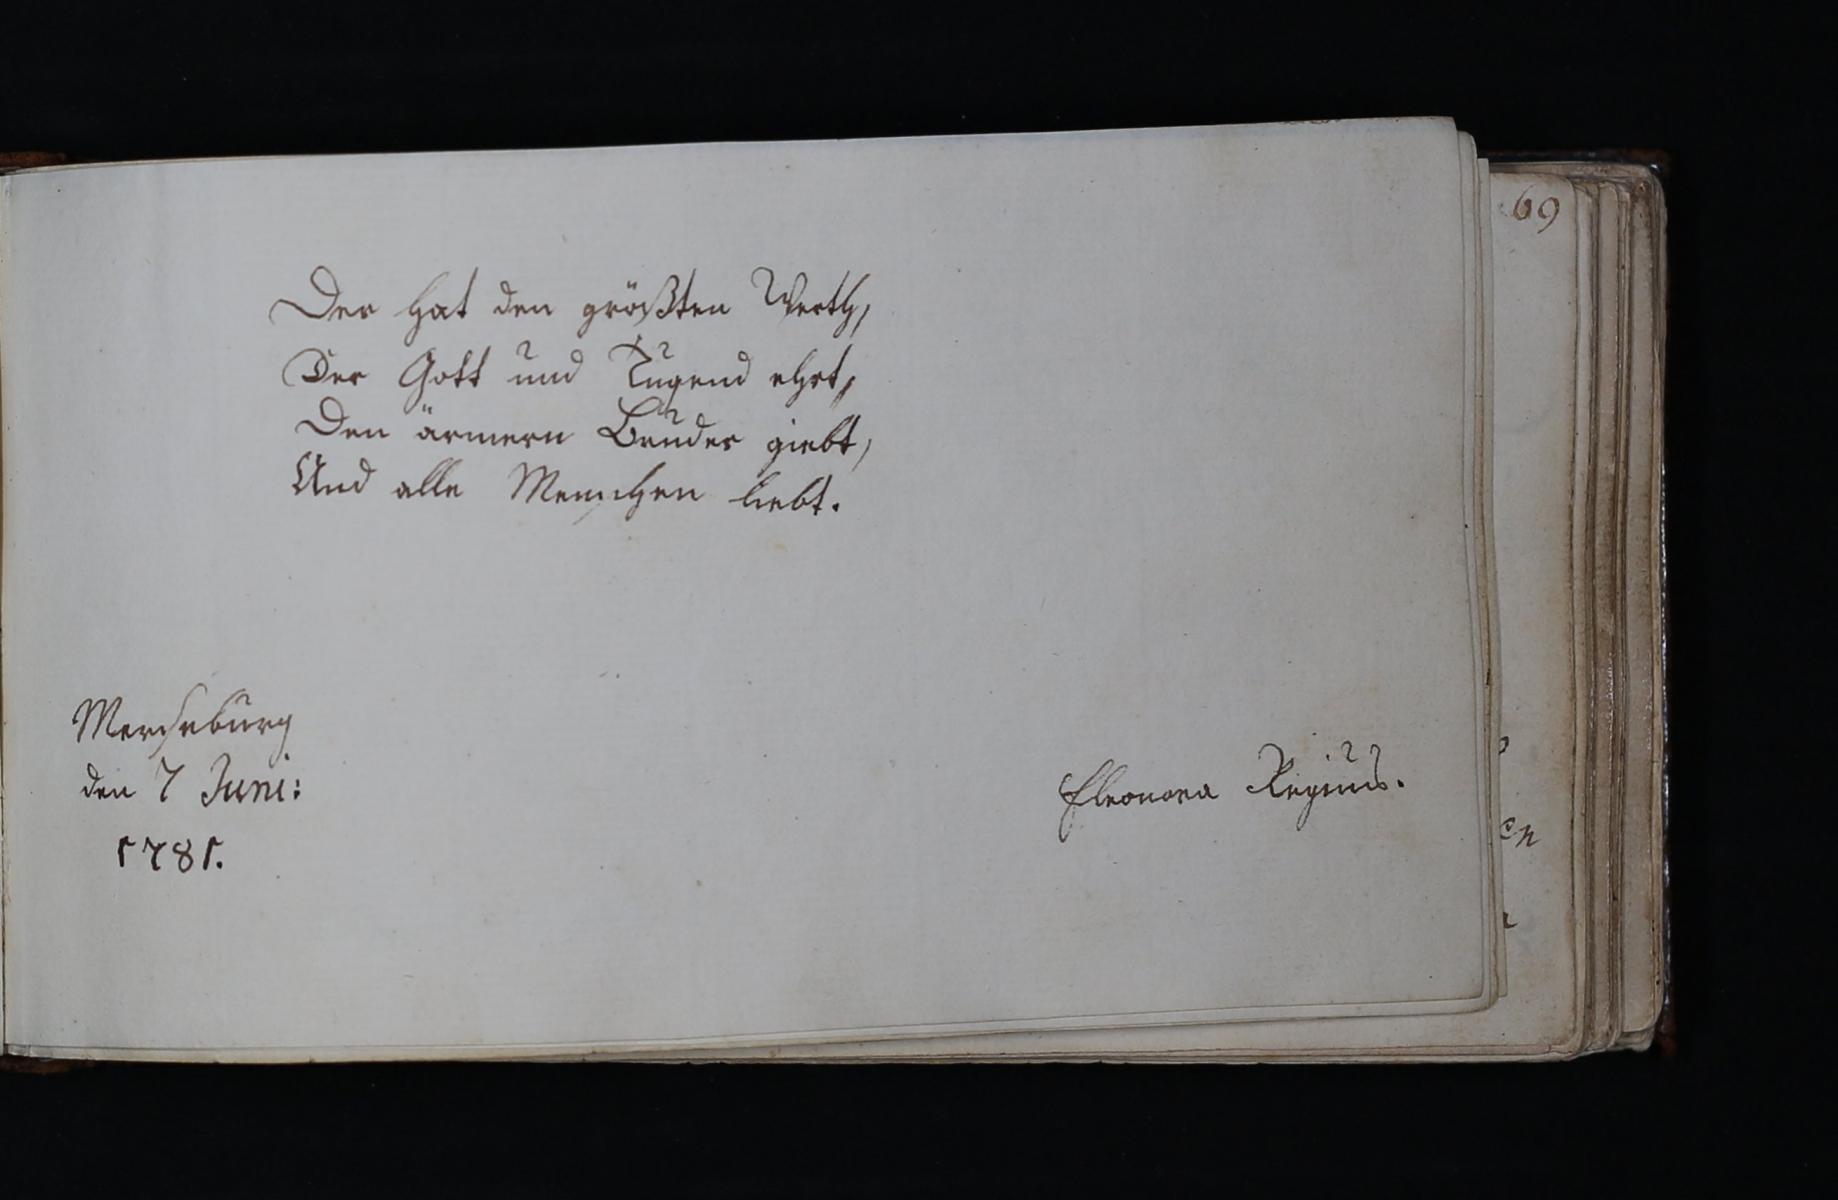 69
Der hat den größten Werth,
Der Gott und Tugend ehrt,
Den ärmern Bruder giebt,
Und alle Menschen liebt.
Merseburg
den 7 Juni:
1781.
Eleonora Regius.